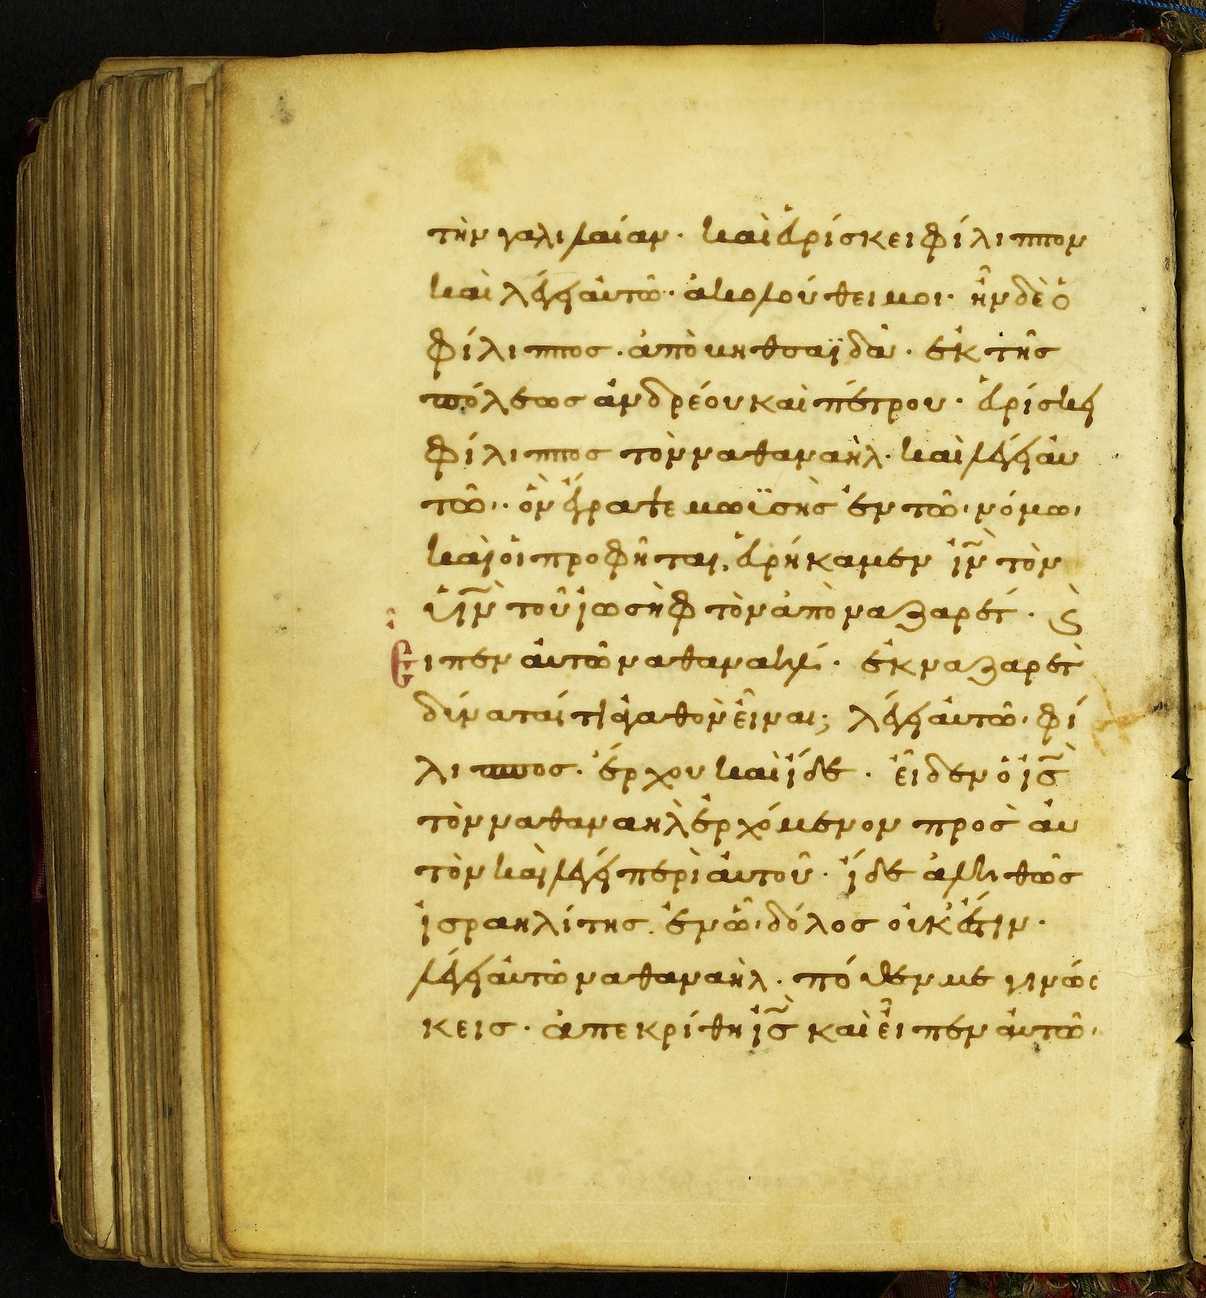 τὴν γαλιλαίαν· καὶ εὑρίσκει φίλιππον
καὶ λέγει αὐτῶ· ἀκολούθει μοι· ἦν δὲ ὁ
φίλιππος· ἀπὸ βηθσαϊδὰ· ἐκ τῆς
πόλεως ἀνδρέου καὶ πέτρου· εὑρίσκει
φίλιππος τὸν ναθαναὴλ· καὶ λέγει αὐ
τῶ· ὃν ἔγραψε μωϋσὴς ἐν τῶ νόμω,
καὶ οἱ προφῆται, εὑρήκαμεν ἰν̃ τὸν
υἱν̃ τοῦ ἰωσὴφ τὸν ἀπὸ ναζαρέτ· Ϛ̀
Ειπεν αὐτῶ ναθαναήλ· ἐκ ναζαρὲτ
δύναταί τι ἀγαθὸν εἶναι; λέγει αὐτῶ· φί
λιππος· ἔρχου καὶ ἴδε· εἶδεν ὁ ἰς̃
τὸν ναθαναηλ ἐρχόμενον πρὸς αὐ
τὸν καὶ λέγει περὶ αὐτοῦ· ἴδε ἀληθῶς
ἰσραηλίτης. ἐν ὧ δόλος οὐκ ἔστιν·
λέγει αὐτῶ ναθαναὴλ· πόθεν με γινώσ
κεις· ἀπεκρίθη ἰς̃ καὶ εἶπεν αὐτῶ,